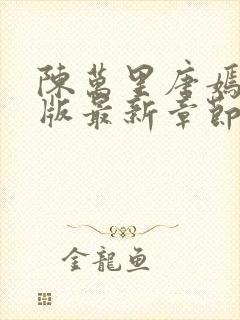 陳萬里唐嫣
版最新章節
金龍魚